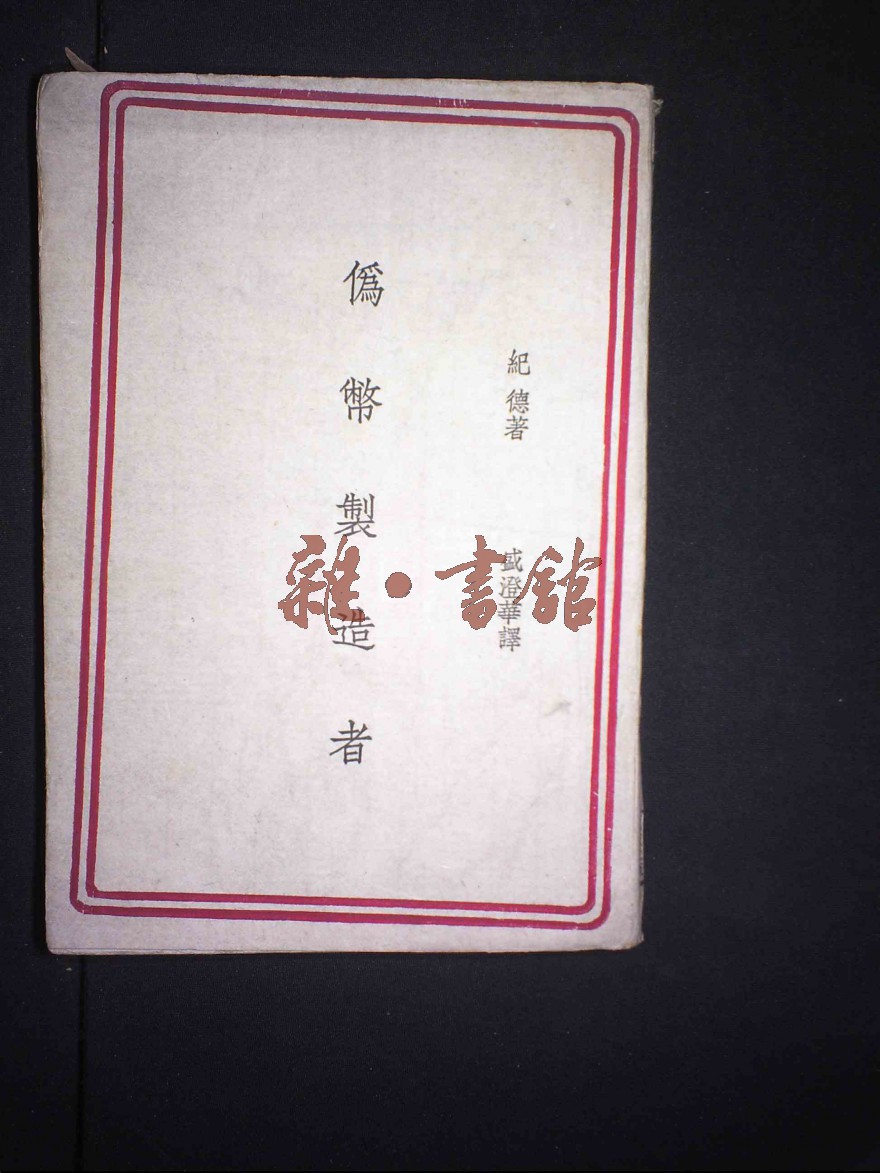 紀德著
盛澄華譯
僞幣製造者
雜·書館